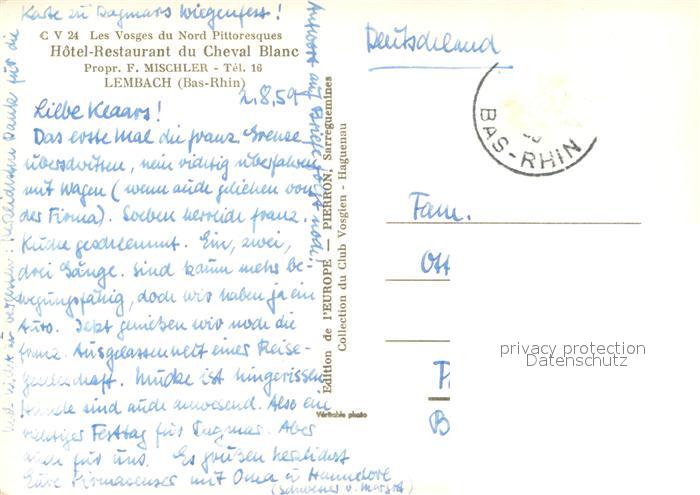 Karte zu Dagmars Wiegenfest!
C V 24 Les Vosges du Nord Pittoresques
Hôtel-Restaurant du Cheval Blanc
Propr. F. MISCHLER - Tél. 16
LEMBACH (Bas-Rhin)
2.8.59
Liebe Klaars!
Das erste Mal die franz. Grenze
überschritten, nein richtig überfahren
mit Wagen (wenn auch geliehen von
der Firma). Soeben herrliche franz.
Küche geschlemmt. Ein, zwei,
drei Gänge. Sind kaum mehr be-
wegungsfähig, doch wir haben ja ein
Auto. Jetzt genießen wir noch die
franz. Ausgelassenheit einer Reise-
gesellschaft. Mucke ist hingerissen
Hunde sind auch anwesend. Also ein
richtiger Festtag für Dagmar. Aber
auch für uns. Es grüßen herzlichst
Eure Pirmasenser mit Oma u Hannelore
(Schwester v. Margot)
Und nicht zu vergessen: herzlichsten Dank für die
Antwort auf Brief folgt noch!
Edition de l'EUROPE — PIERRON, Sarreguemines
Collection du Club Vosgien - Haguenau
Véritable photo
Deutschland
BAS-RHIN
Fam.
Ott
P
B
privacy protection
Datenschutz